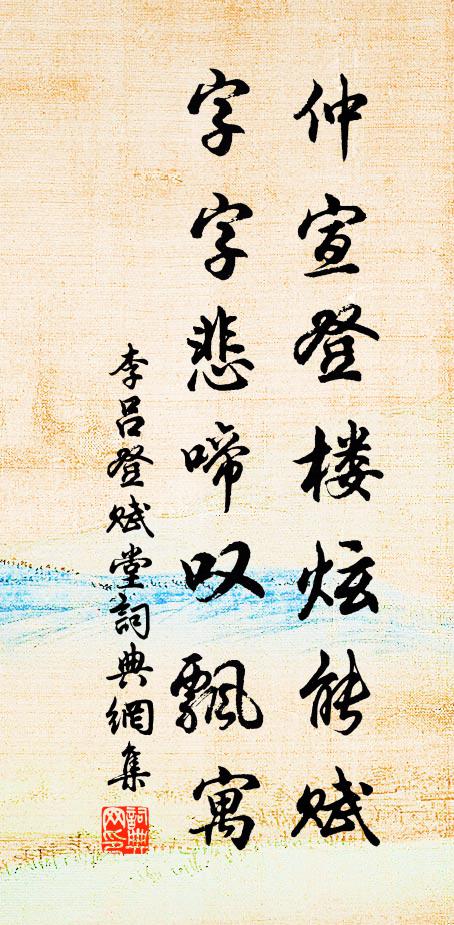 仲宣登楼炫能赋
字字悲啼叹飄寓
李吕登赋堂詞典網集
詞典网印